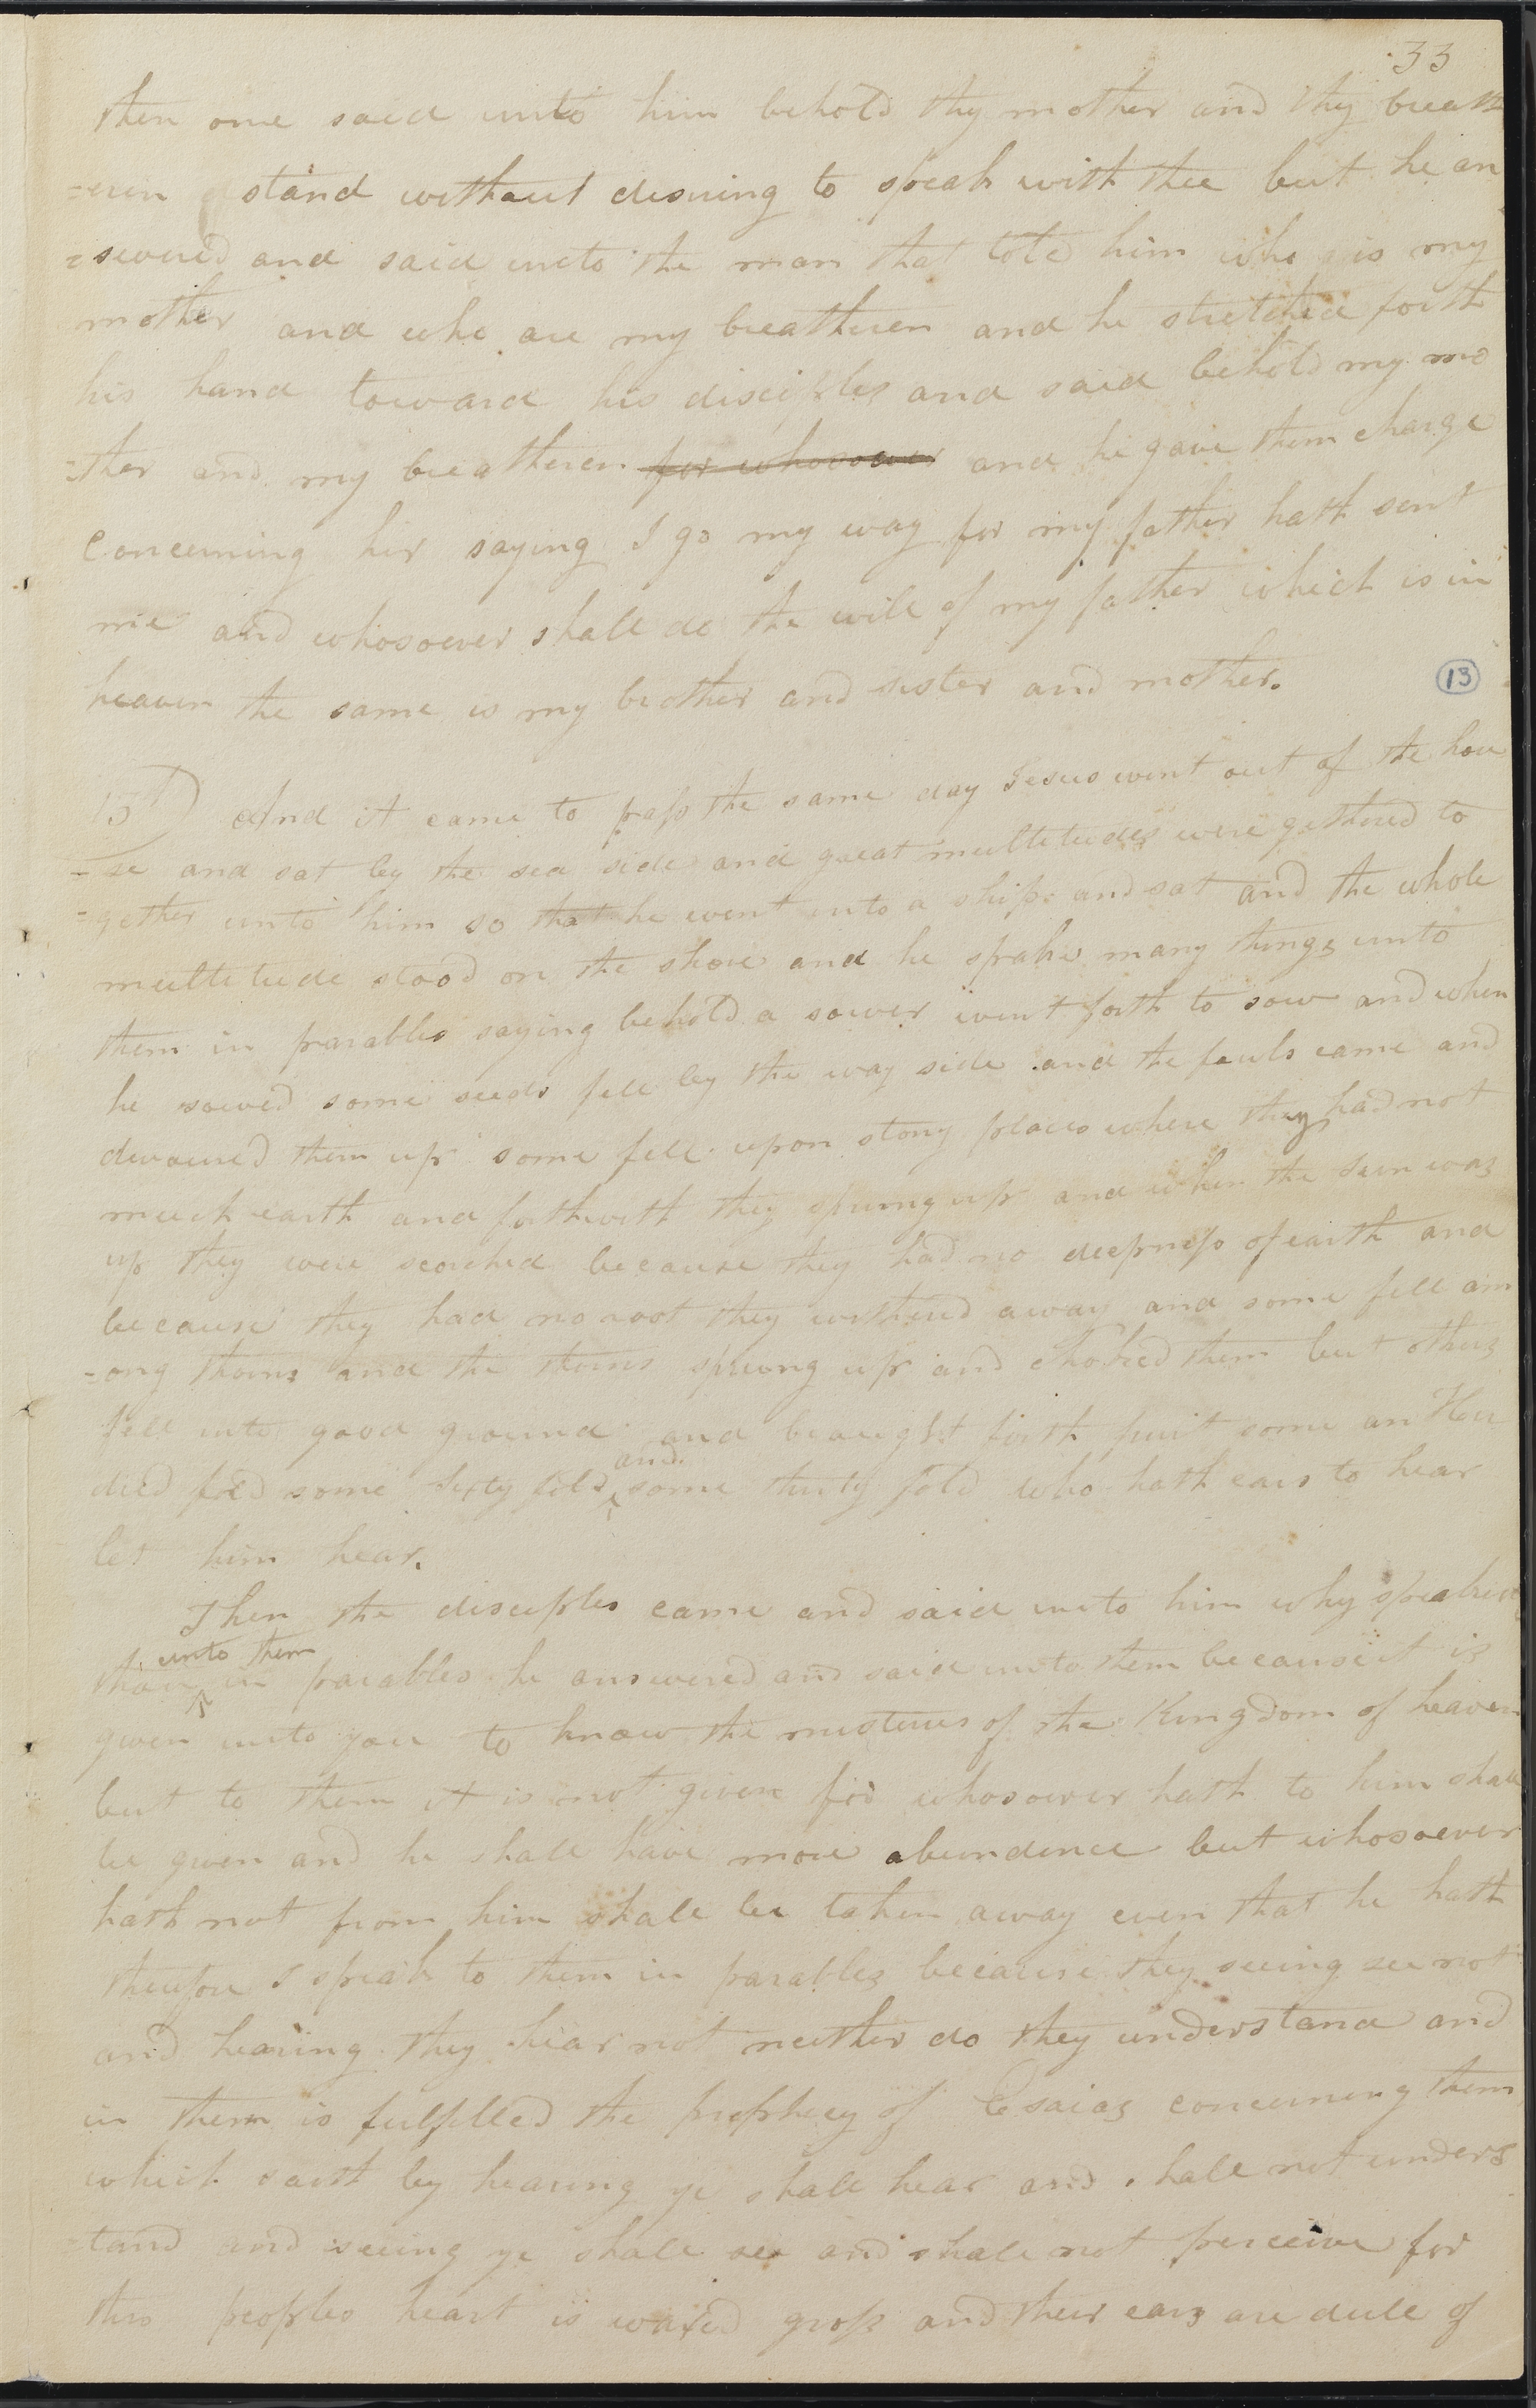 33
then one said unto him behold thy mother and thy breath
=eren stand without desiring to speak with thee but he an
=swered and said unto the man that told him who is my
mother and who are my breatheren and he stretched forth
his hand toward his disciples and said behold my mo
=ther and my breatheren for whosoever and he gave them charge
concerning her saying I go my way for my father hath sent
me and whosoever shall do the will of my father which is in
heaven the same is my brother and sister and mother.
13
And it came to pass the same day Jesus went out of the hou
=se and sat by the sea side and great multitudes were gethered to
=gether unto him so that he went into a ship and sat and the whole
multitude stood on the shore and he spake many things unto
them in parables saying behold a sower went forth to sow and when
he sowed some seeds fell by the way side and the fouls came and
devoured them up some fell upon stony places where they had not
much earth and forthwith they sprung up and when the sun was
up they were scorched because they had no deepness of earth and
because they had no root they withered away and some fell am
=ong thorns and the thorns sprung up and choked them but others
fell into good ground and braught forth fruit some an Hun
dred fold some sixty fold and some thirty fold who hath ears to hear
let him hear.
Then the disciples came and said unto him why speakest
thou unto them in parables he answered and said unto them because it is
given unto you to know the misteries of the Kingdom of heaven
but to them it is not given for whosoever hath to him shall
be given and he shall have more abundence but whosoever
hath not from him shall be taken away even that he hath
therefore I speak to them in parables because they seeing see not
and hearing they hear not neither do they understand and
in them is fulfilled the prophecy of Esaias concerning them
which saith by hearing ye shall hear and shall not unders
tand and seeing ye shall see and shall not perceive for
this peoples heart is waxed gross and their ears are dull of